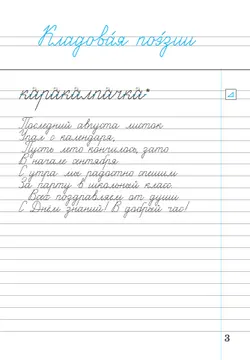 Кладова́я поэ́зии
каракалпачка*
Последний августа листок
Упал с календаря,
Пусть лето кончилось, зато
В начале сентября
С утра мы радостно спешим
За парту в школьный класс.
Всех поздравляем от души
С Днём знаний! В добрый час!
3